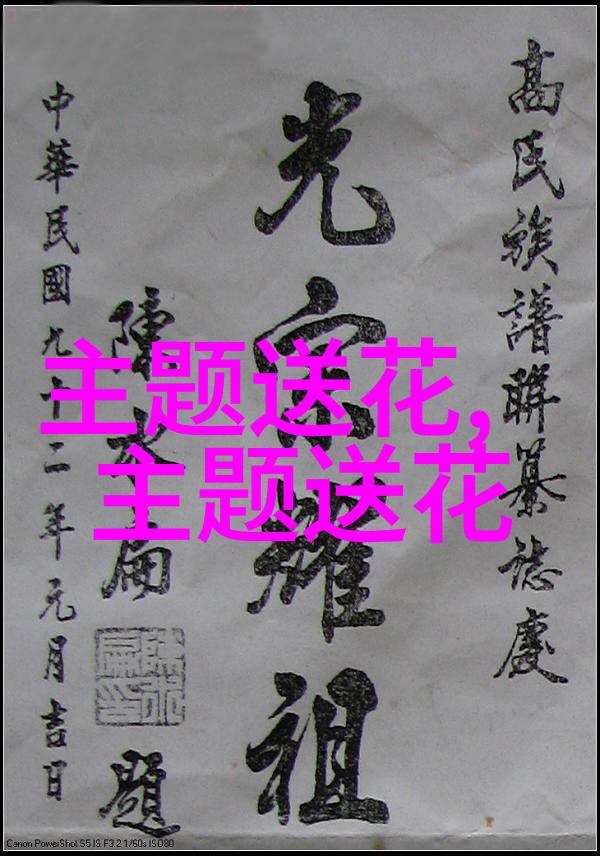 高氏族譜聯纂誌慶
光宗耀祖
陳水扁
題
中華民國九十二年元月吉日
主题送花,
主题送花
Canon PowerShot S5 IS F3.2 1/60s ISO80